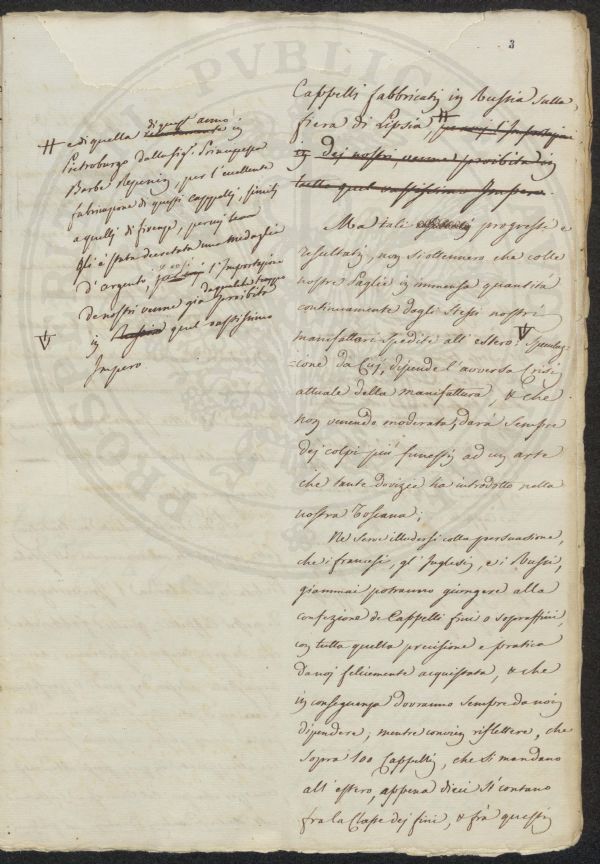 3
Cappelli fabbricati in Russia sulla
fiera di Lipsia #
in dei nostri, venne proibita in
tutto quel vastissimo Impero.
Ma tali progressi e
resultati, non si ottennero che colle
nostre Paglie in immensa quantità
continuamente dagli stessi nostri
manifattori spedite all'estero. Spedi-
zione da cui, dipende l'avversa Crisi
attuale della manifattura, & che
non venendo moderata, darà sempre
dei colpi più funesti ad un arte
che tante dovizie ha introdotto nella
nostra Toscana;
Ne serve illudersi colla persuasione,
che i francesi, gl'Inglesi, e i Russi,
giammai potranno giungere alla
confezione de Cappelli fini o sopraffini,
con tutta quella precisione e pratica
da noi felicemente acquistata, & che
in conseguenza dovranno sempre da noi
dipendere; mentre convien riflettere, che
sopra 100 Cappelli, che si mandano
all'estero, appena dieci si contano
fra la Classe dei fini, & frà questi
# e di quella di quest'anno in
Pietroburgo dalla Sig.ª Principessa
Barbe Repnin, per l'eccellente
fabricazione di questi cappelli, simili
a quelli di firenze, per cui
gli è stata decretata una Medaglia
d'argento, l'Importazione
de nostri venne già da qualche tempo proibita
in quel vastissimo
Impero
PROSPERITATI PUBLICAE